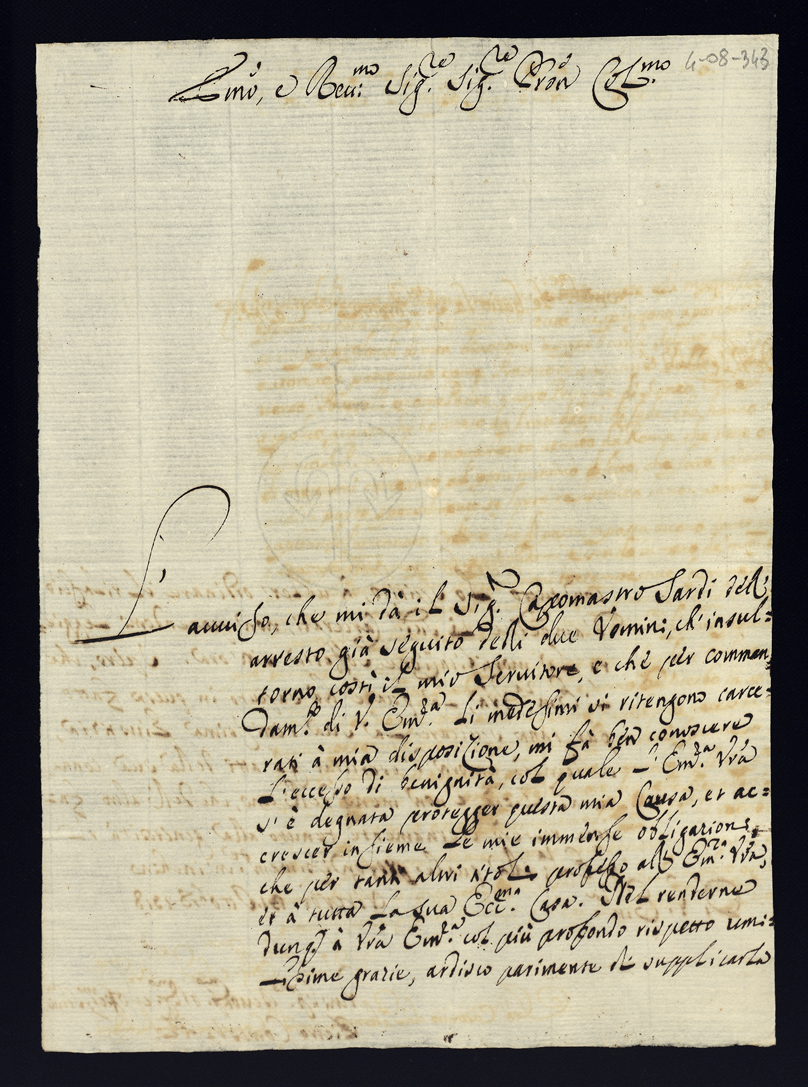 4-08-343
Emõ, e Reu:mo Sig.re Sig.re Pron̄ Col.mo
L'
auuiso, che mi dà il Sig.r Capomastro Sardi dell'
arresto già seguito delli due Uomini, ch' insul=
torno costì il mio Seruitore, e che per comman=
dam.to di V. Em.za li medesimi si ritengono carce=
rati à mia disposizione, mi fà ben conoscere
l'eccesso di benignità, col quale l'Em.za Vrã
s'è degnata protegger questa mia Causa, et ac=
crescer insieme le mie immense obligazioni,
che per tanti altri titoli professo all' Em.za Vrã,
et à tutta la sua Ecc.ma Casa. Nel renderne
dunq à Vrã Em.za col più profondo rispetto umi=
lissime grazie, ardisco parimente di supplicarla